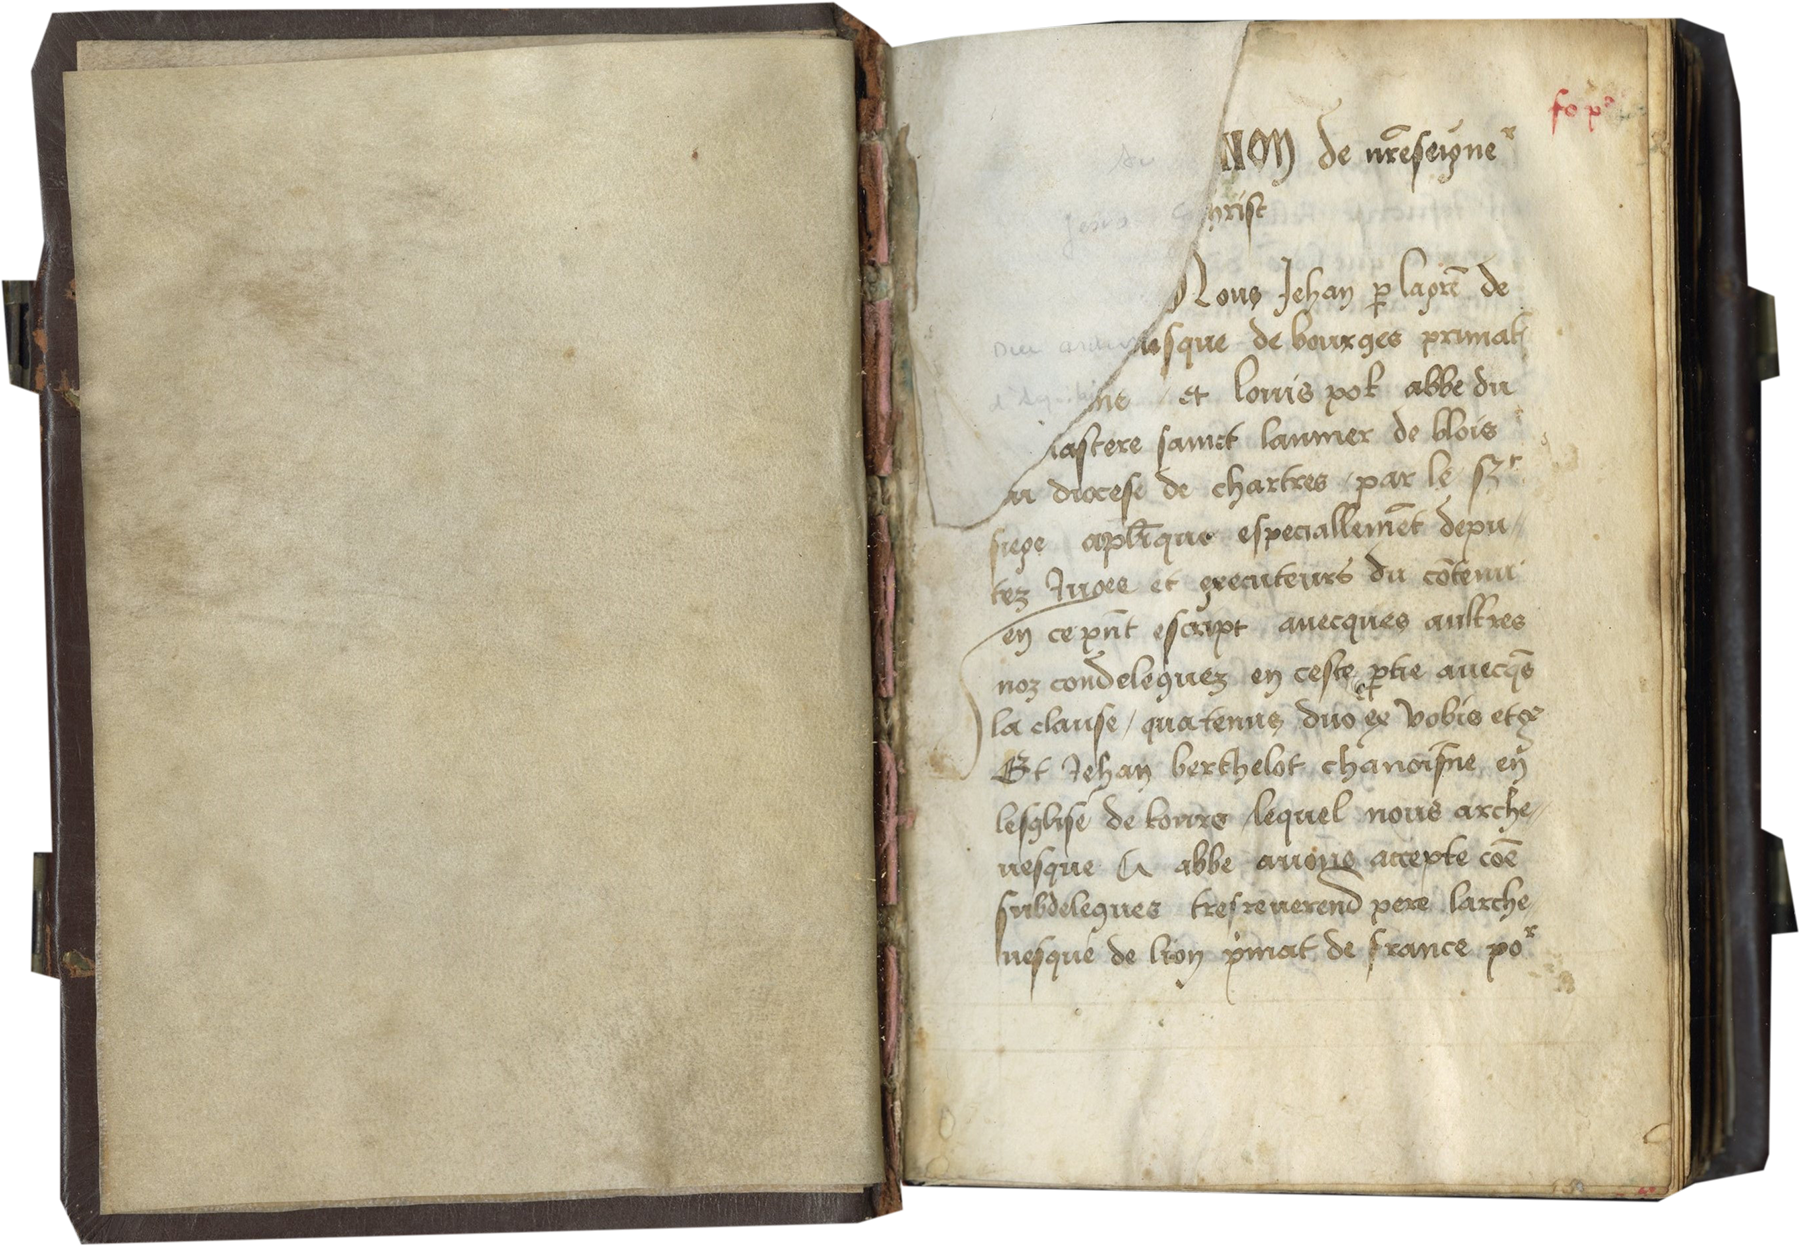 fo xº
NOM de nr̃eseigne^r
hrist
Nous Jehan p̱ lagrẽ de
uesque de bourges primat
ne / et louis pot abbe du
nastere sainct laumer de blois
u diocese de chartres / par le s^t
siege apl̃ique especiallemẽt depu /
tez Juges et executeurs du cõtenu
en ce pñt escript avecques aultres
noz condeleguez en ceste p̱tie avecq̃s
la clause / quatenus duo ex vobis etc̃
Et Jehan berthelot chanoisne en
lesglise de tours / lequel nous arche //
vesque & abbe avons accepte cõe
subdelegues tresreverend pere larche /
vesque de lion p̃mat de france po^r